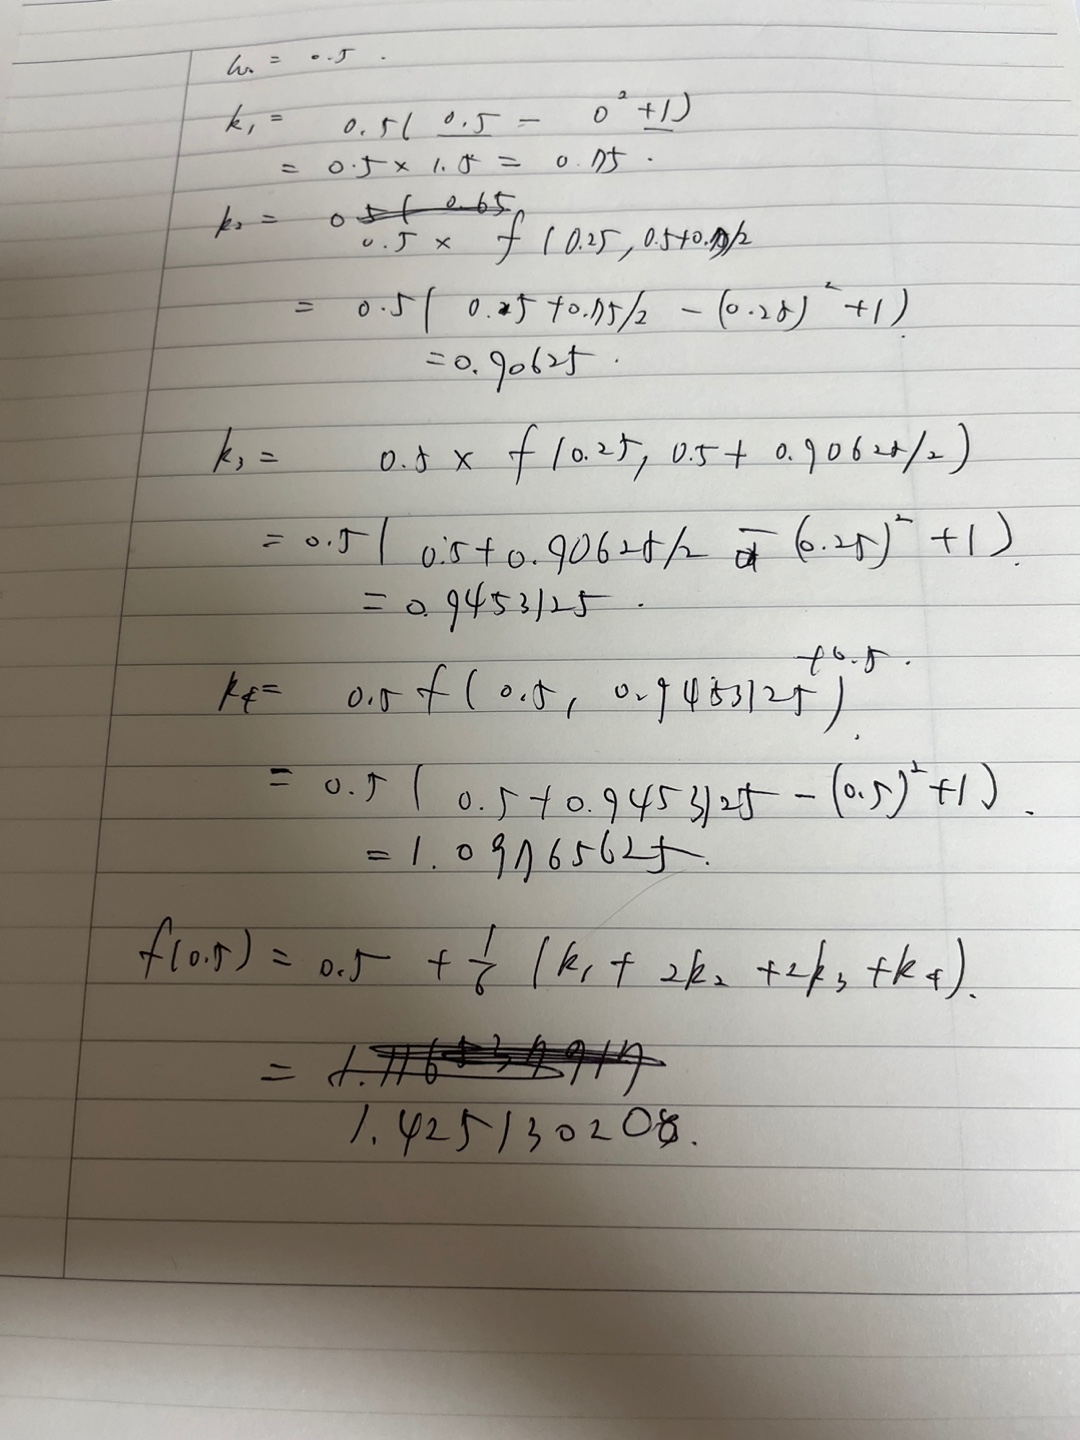 h = 0.5.
k₁ = 0.5( 0.5 - 0² +1)
= 0.5 × 1.5 = 0.75.
k₂ =
0.5 × f(0.25, 0.5+0.75/2
= 0.5( 0.5+0.75/2 - (0.25)² +1)
= 0.90625.
k₃ = 0.5 × f(0.25, 0.5+ 0.90625/2)
= 0.5( 0.5+0.90625/2 - (0.25)² +1).
= 0.9453125.
+0.5.
k₄ = 0.5 f( 0.5, 0.9453125).
= 0.5( 0.5+0.9453125 - (0.5)² +1).
= 1.09765625.
f(0.5) = 0.5 + 1/6 (k₁ + 2k₂ +2k₃ +k₄).
=
1.425130208.